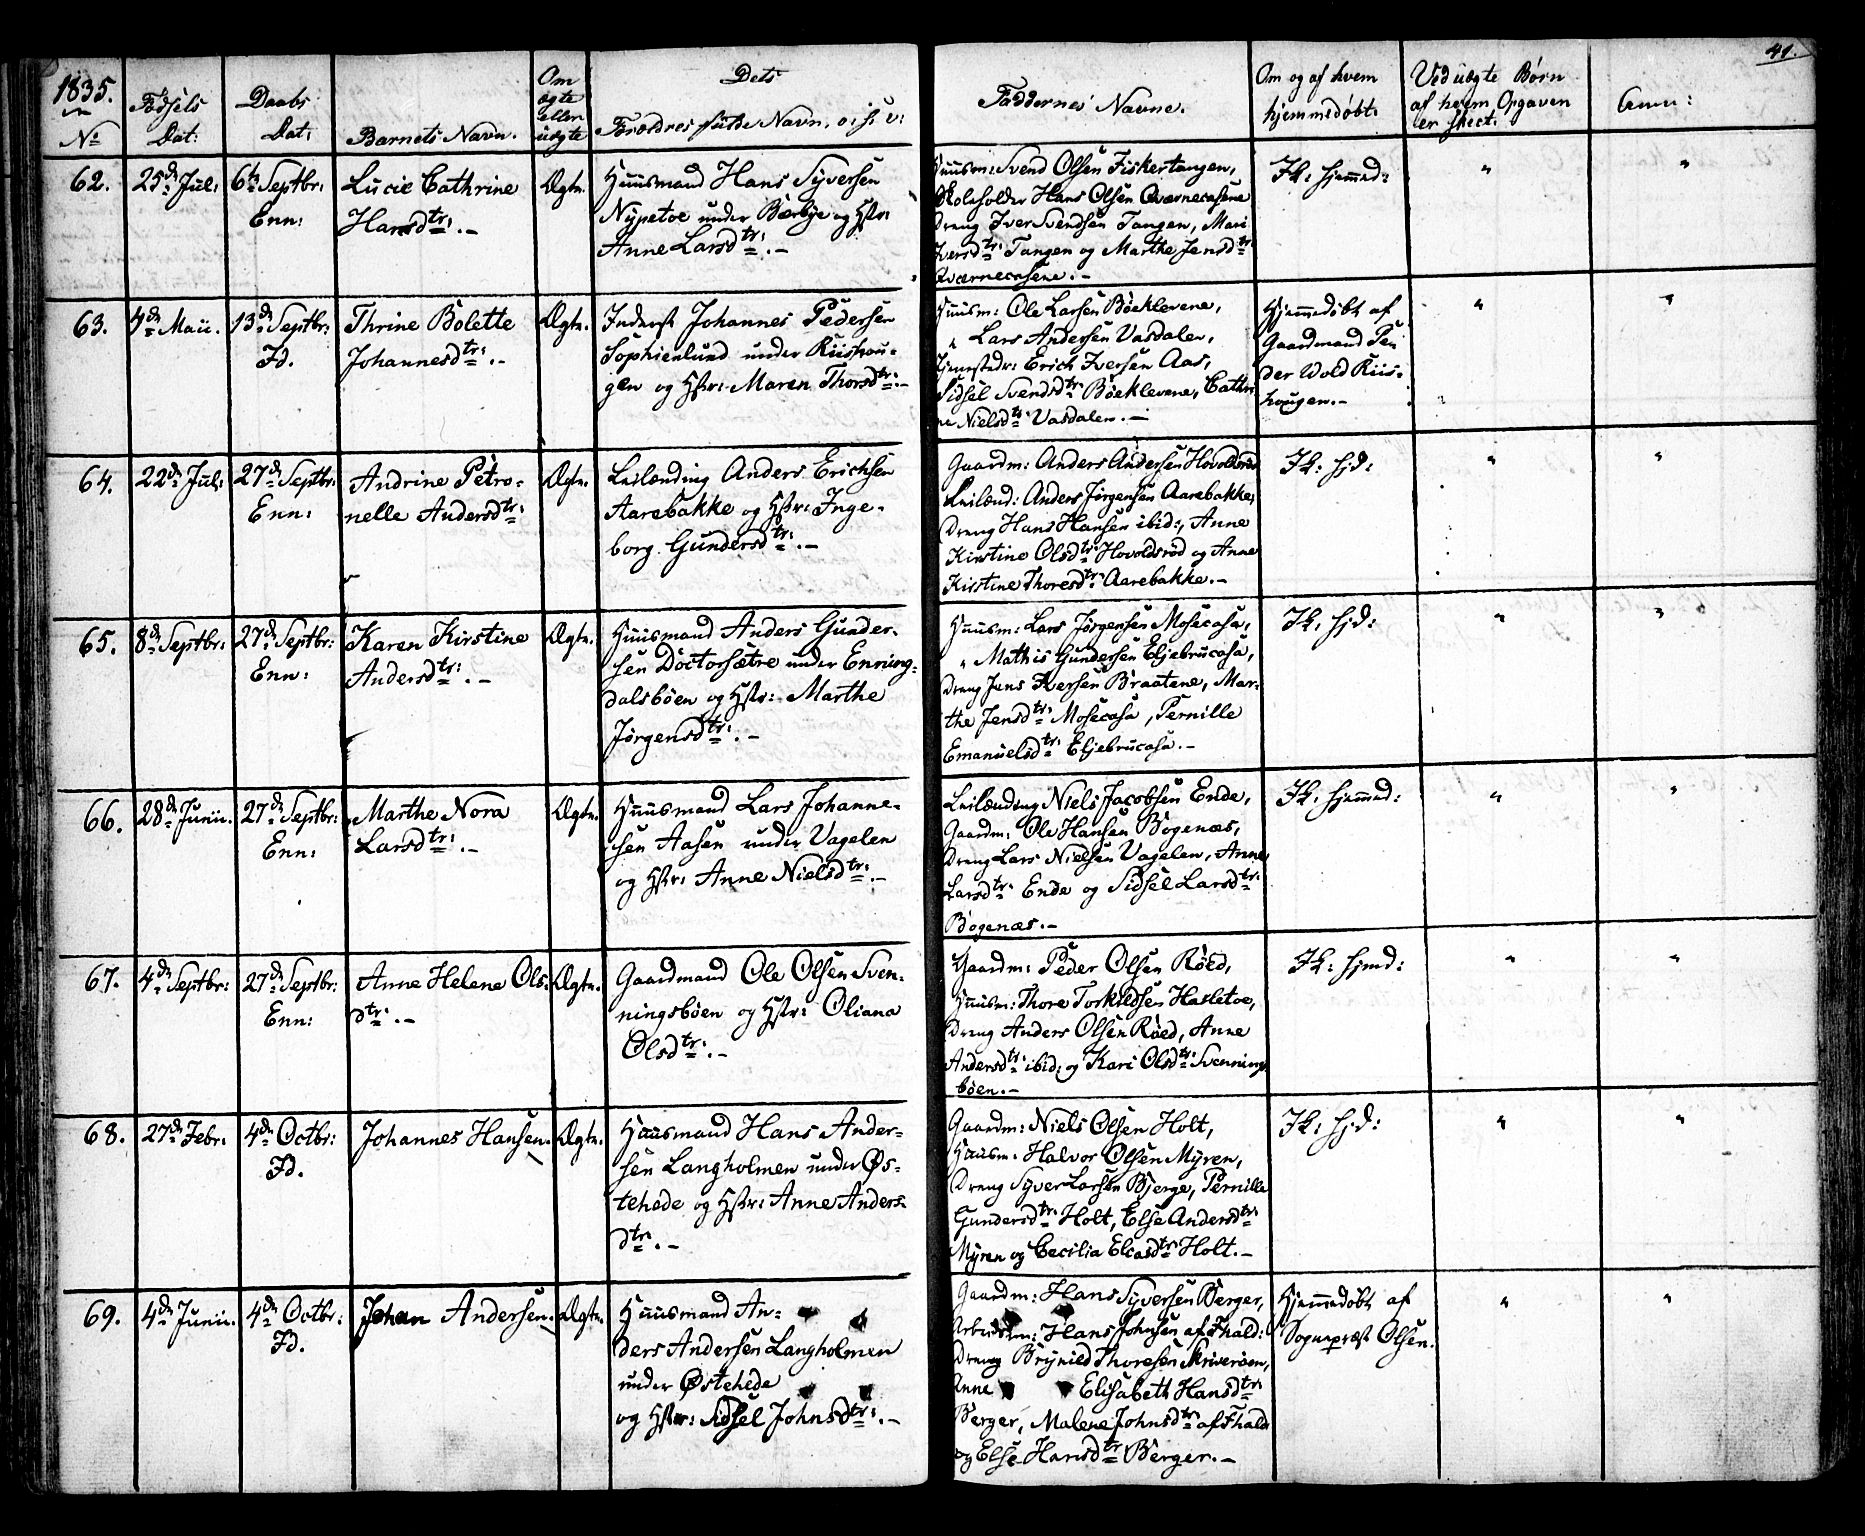 41.
1835.
No
Fødsels
Dat:
Daabs
Dat:
Barnets Navn.
Om
ægte
eller
uægte
Dets
Forældres fulde Navn. o: s: v:
Faddernes Navne.
Om og af hvem
hjemmedøbt.
Ved uægte Børn
af hvem Opgaven
er skeet.
Anm:
62.
25de Jul:
6te Septbr:
Enn:
Lucie Cathrine
Hansdtr: .-
Ægte.
Huusmand Hans Syversen
Nypetoe under Bærbye og Hstr:
Anne Larsdtr: .-
Huusm: Svend Olsen Fiskertangen,
Skoleholder Hans Olsen Qværnecasene
Dreng Iver Svendsen Tangen, Mari
Iversdtr: Tangen og Marthe Jensdtr:
Qværnecasene.-
Ik: hjemmed:
"
"
63.
4de Maii.
13de Septbr:
Id.
Thrine Bolette
Johannesdtr: .-
Ægte.
Inderst Johannes Pedersen
Sophienlund under Riishou-
gen og Hstr: Maren Thorsdtr: .-
Huusm: Ole Larsen Bøeklevene,
" Lars Andersen Vasdalen,
Tjenestedr: Erich Iversen Aas,
Sidsel Svendsdtr: Bøeklevene, Cathri
ne Nielsdtr: Vasdalen.-
Hjemmedøbt af
Gaardmand Peu
der Wold Riis-
hougen.-
"
"
64.
22de Jul:
27de Septbr:
Enn:
Andrine Petro-
nelle Andersdtr:
Ægte.
Leilænding Anders Erichsen
Aarebakke og Hstr: Inge-
borg Gundersdtr: .-
Gaardm: Anders Andersen Hovoldsrød
Leilænd: Anders Jørgensen Aarebakke,
Dreng Hans Hansen ibid:, Anne
Kirstine Olsdtr: Hovoldsrød og Anne
Kirstine Thoresdtr: Aarebakke.-
Ik: hj.d:
"
"
65.
8de Septbr:
27de Septbr:
Enn:
Karen Kirstine
Andersdtr: .-
Ægte.
Huusmand Anders Gunder-
sen Doctorsætre under Enning-
dalsbøen og Hstr: Marthe
Jørgensdtr: .-
Huusm: Lars Jørgensen Mosecasa,
" Mathis Gundersen Eljebrucasa,
Dreng Jens Iversen Braatene, Mar-
the Jensdtr: Mosecasa, Pernille
Emanuelsdtr: Eljebrucasa.-
Ik: hj.d:
"
"
66.
28de Junii.
27de Septbr:
Enn:
Marthe Nora
Larsdtr: .-
Ægte.
Huusmand Lars Johanne-
sen Aasen under Vagelen
og Hstr: Anne Nielsdtr: .-
Leilænding Niels Jacobsen Ende,
Gaardm: Ole Hansen Bogenæs,
Dreng Lars Nielsen Vagelen, Anne
Larsdtr: Ende og Sidsel Larsdtr:
Bogenæs.-
Ik: hjemmed:
"
"
67.
4de Septbr:
27de Septbr:
Enn:
Anne Helene Ols-
dtr: .-
Ægte.
Gaardmand Ole Olsen Sven-
ningsbøen og Hstr: Oliana
Olsdtr: .-
Gaardm: Peder Olsen Røed,
Huusm: Thore Torkildsen Hasletoe,
Dreng Anders Olsen Røed, Anne
Andersdtr: ibid: og Kari Olsdtr: Svennings
bøen.-
Ik: hjmd:
"
"
68.
27de Febr:
4de Octbr:
Id.
Johannes Hansen.
Ægte.
Huusmand Hans Ander-
sen Langholmen under Øs-
tehede og Hstr: Anne Anders-
dtr: .-
Gaardm: Niels Olsen Holt,
Huusm: Halvor Olsen Myren,
Dreng Syver Larsen Bjerge, Pernille
Gundersdtr: Holt, Else Andersdtr:
Myren og Cecilia Eliasdtr: Holt.-
Ik: hj.d:
"
"
69.
4de Junii.
4de Octbr:
Id.
Johan Andersen.
Ægte.
Huusmand An-
ders Andersen Langholmen
under Østehede
og Hstr: Sidsel Johnsdtr: .-
Gaardm: Hans Syversen Berger,
Arbeidsm: Hans Johnsen af Fhald:
Dreng Brynild Thoresen Skriverøen,
Anne Elisabeth Hansdtr:
Berger, Malene Johnsdtr: af Fhald
og Else Hansdtr: Berger.-
Hjemmedøbt af
Sognepræst Olsen.
"
"